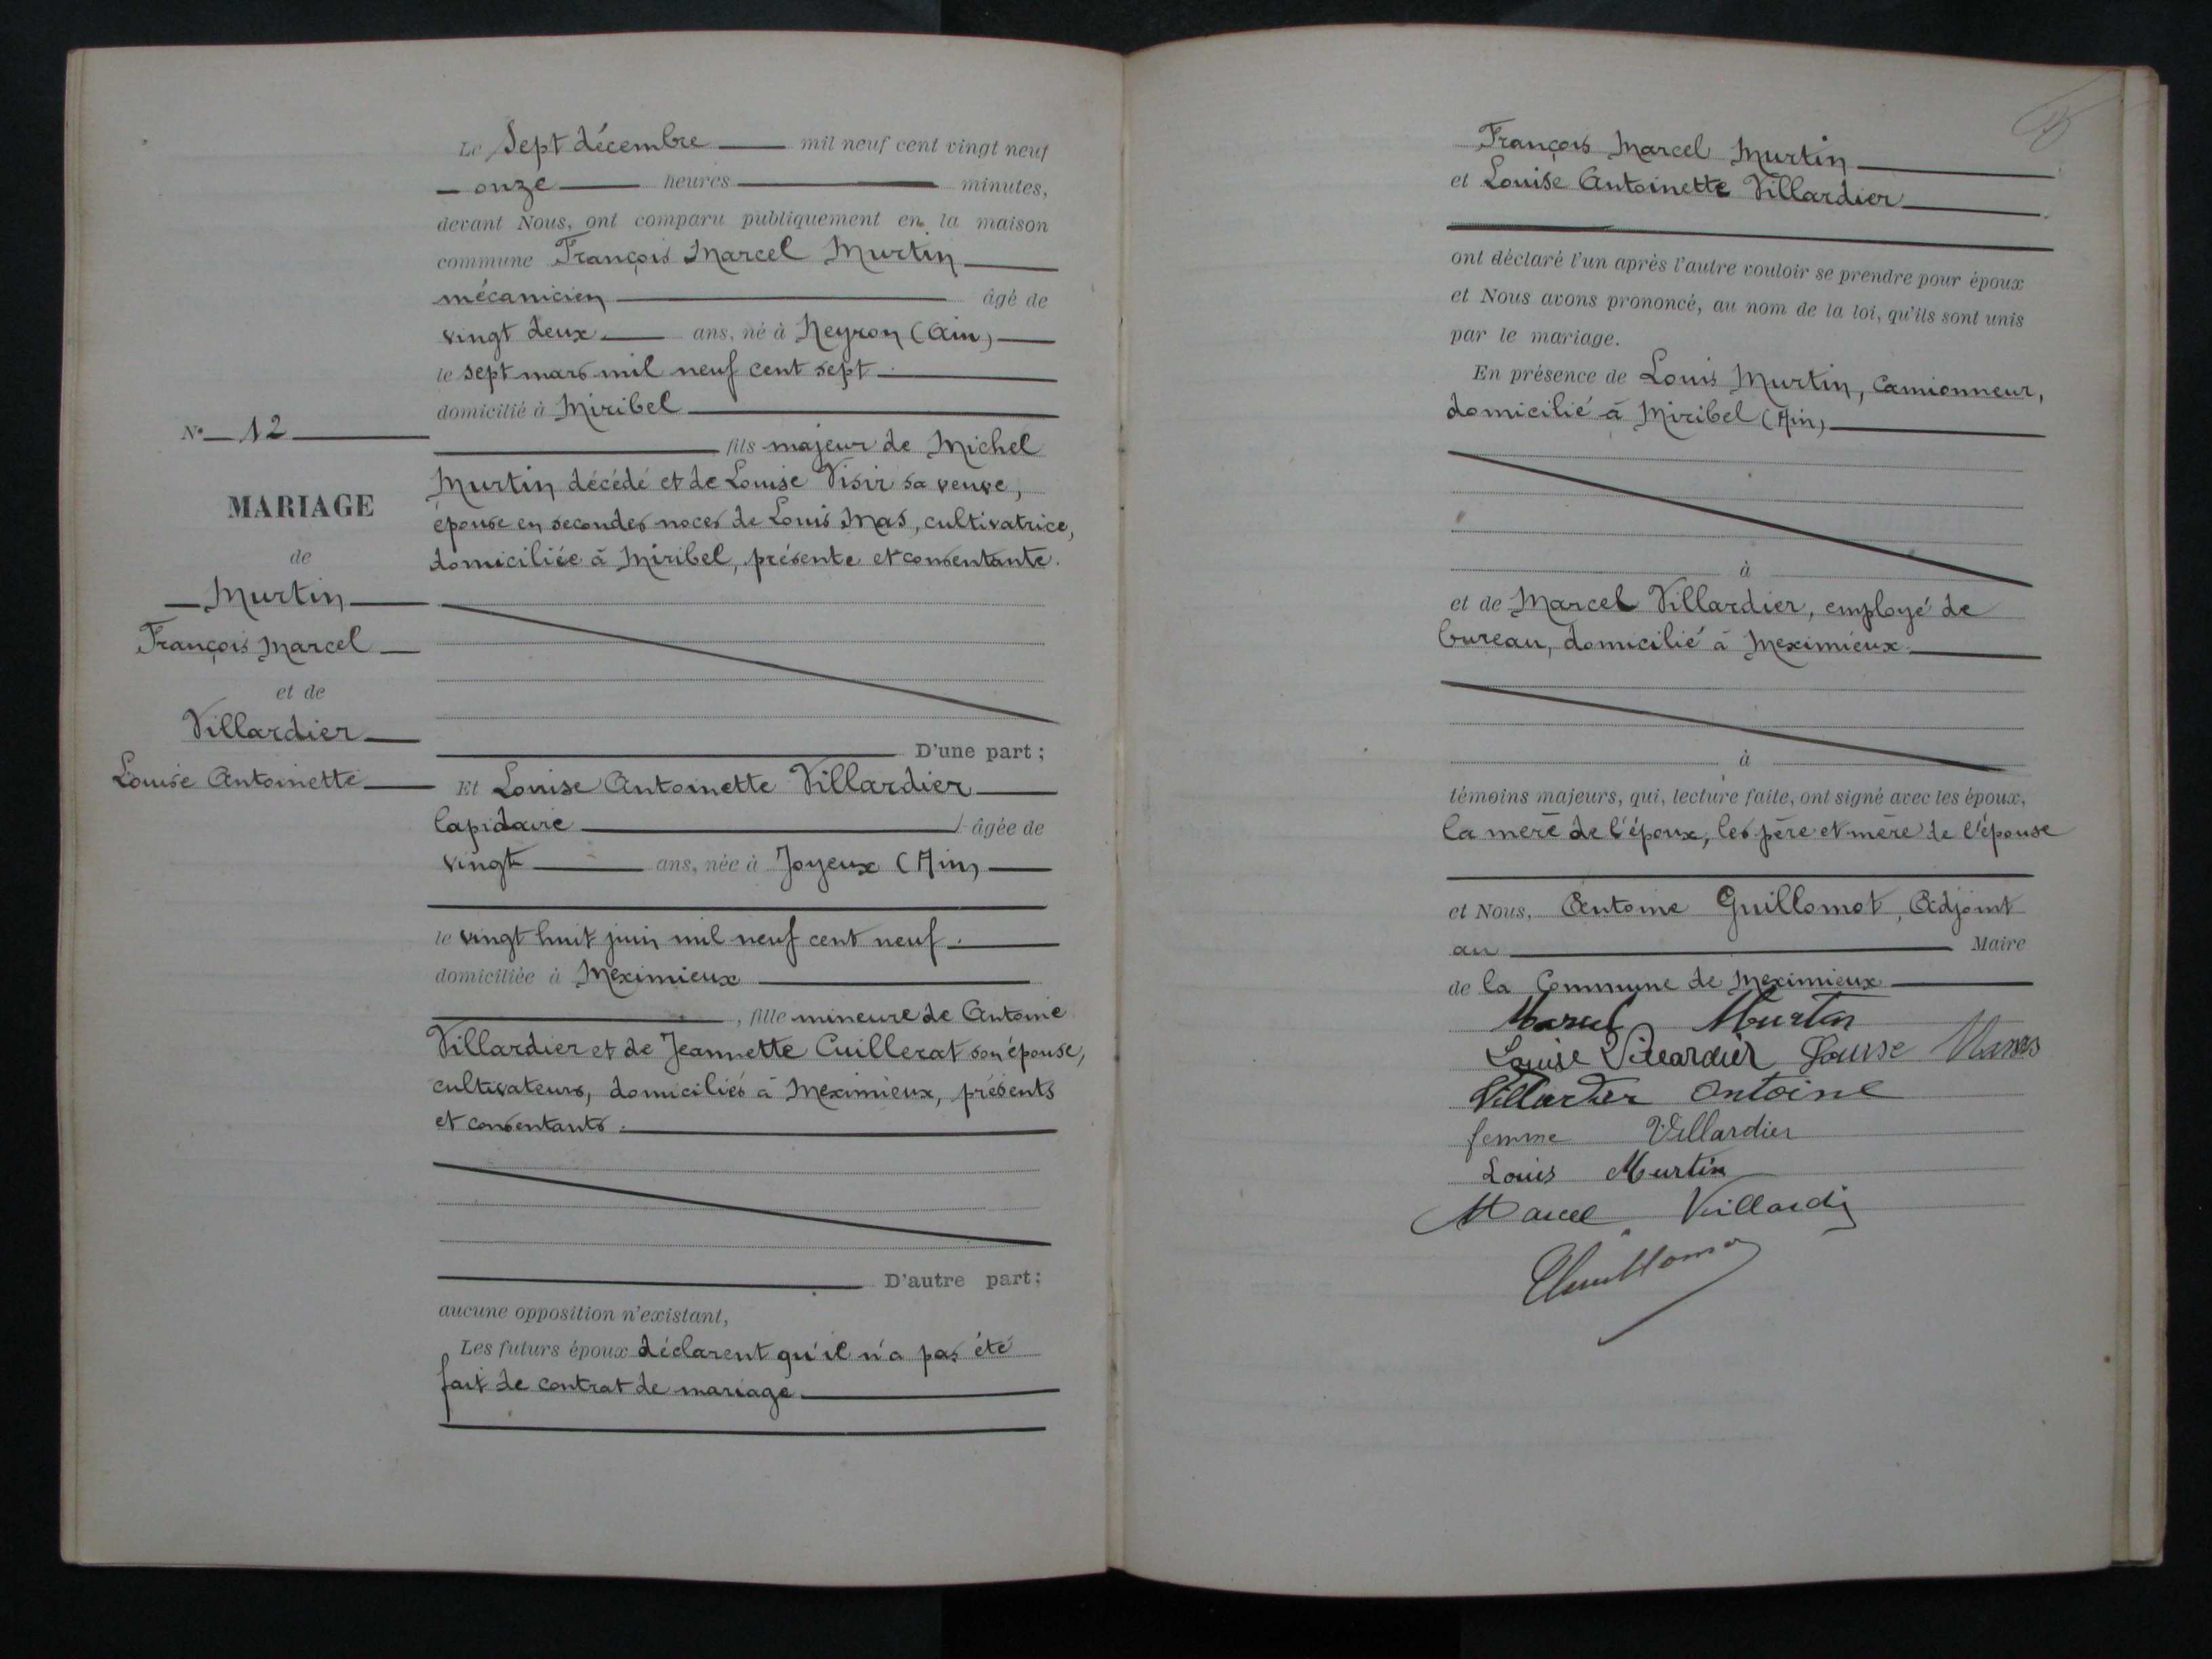 Le Sept décembre mil neuf cent vingt neuf
onze heures minutes,
devant Nous, ont comparu publiquement en la maison
commune François Marcel Murtin
mécanicien âgé de
vingt deux ans, né à Neyron (Ain)
le sept mars mil neuf cent sept
domicilié à Miribel
fils majeur de Michel
Murtin décédé et de Louise Visir sa veuve,
épouse en secondes noces de Louis Mas, cultivatrice,
domiciliée à Miribel, présente et consentante.
D'une part;
N° 12
MARIAGE
de
Murtin
François Marcel
et de
Villardier
Louise Antoinette
Et Louise Antoinette Villardier
lapidaire âgée de
vingt ans, née à Joyeux (Ain)
le vingt huit juin mil neuf cent neuf.
domiciliée à Meximieux
, fille mineure de Antoine
Villardier et de Jeannette Cuillerat son épouse,
cultivateurs, domiciliés à Meximieux, présents
et consentants.
D'autre part:
aucune opposition n'existant,
Les futurs époux déclarent qu'il n'a pas été
fait de contrat de mariage
François Marcel Murtin
et Louise Antoinette Villardier
ont déclaré l'un après l'autre vouloir se prendre pour époux
et Nous avons prononcé, au nom de la loi, qu'ils sont unis
par le mariage.
En présence de Louis Murtin, Camionneur,
domicilié à Miribel (Ain)
à
et de Marcel Villardier, employé de
bureau, domicilié à Meximieux.
à
témoins majeurs, qui, lecture faite, ont signé avec les époux,
la mère de l'époux, les père et mère de l'épouse
et Nous, Antoine Guillomot, Adjoint
au Maire
de la Commune de Meximieux
Marcel Murtin
Louise Villardier Louise
Villardier Antoine
femme Villardier
Louis Murtin
Marcel Villardier